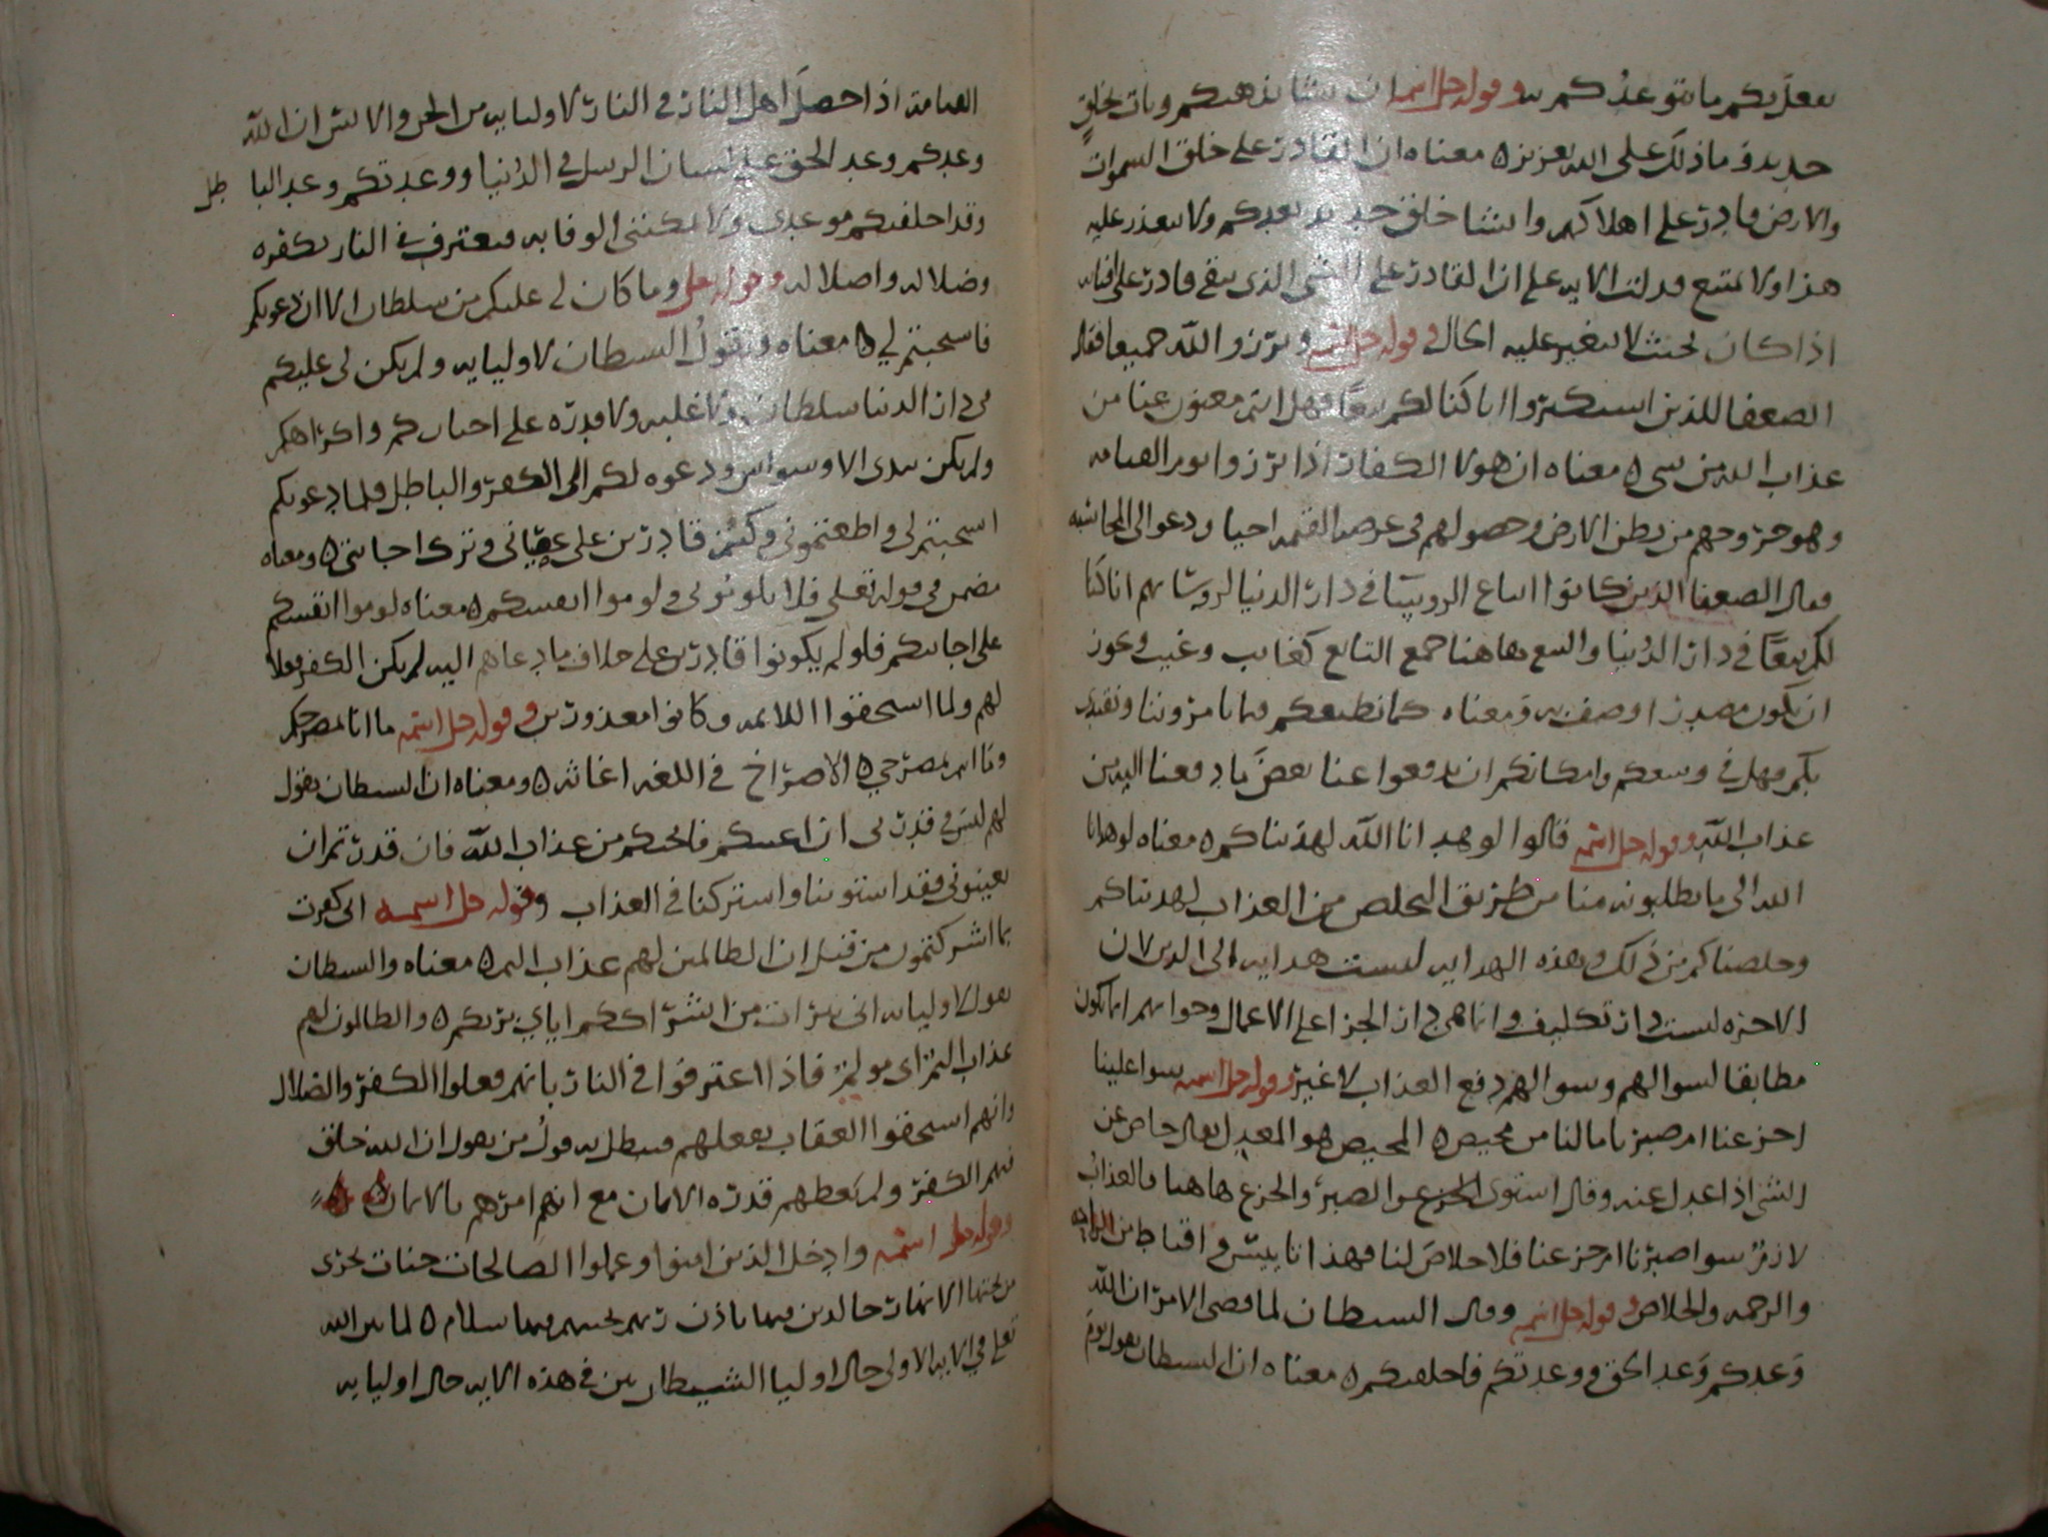 يفعل بكم ما يتوعدكم به وقوله جل اسمه ان يشا يذهبكم ويات بخلق
جديد وما ذلك على الله بعزيز ه معناه ان القادر على خلق السموات
والارض قادر على اهلاككم وانشا خلق جديد بعدكم ولا يتعذر عليه
هذا ولا يمتنع فدلت الايه على ان القادر على الشي الذي يبقى قادر على افنايه
اذا كان بحيث لا تتغير عليه الحال وقوله جل اسمه وبرزوا لله جميعا فقال
الضعفا للذين استكبروا انا كنا لكم تبعا فهل انتم مغنون عنا من
عذاب الله من شي ه معناه ان هولا الكفار اذا برزوا يوم القيامه
وهو خروجهم من بطن الارض وحصولهم في عرصه القيمه احيا ودعوا الى المحاسبه
فقال الضعفا الذين كانوا اتباع الروسا في دار الدنيا لروسايهم انا كنا
لكم تبعا في دار الدنيا والتبع هاهنا جمع التابع كغايب وغيب ويجوز
ان يكون مصدر اوصف به ومعناه كما نطيعكم فيما تامروننا ونقتدي
بكم فهل في وسعكم وامكانكم ان تدفعوا عنا بعض ما دفعنا اليه من
عذاب الله وقوله جل اسمه قالوا لو هدانا الله لهديناكم ه معناه لو هدانا
الله الى ما تطلبونه منا من طريق التخلص من العذاب لهديناكم
وخلصناكم من ذلك وهذه الهدايه ليست هدايه الى الدين لان
الاخره ليست دار تكليف وانما هي دار الجزا على الاعمال وجوابهم انما يكون
مطابقا لسوالهم وسوالهم دفع العذاب لا غير وقوله جل اسمه سوا علينا
اجزعنا ام صبرنا ما لنا من محيص ه المحيص هو المعدل يقال حاص عن
الشي اذا عدل عنه وقال استوى الجزع والصبر والجزع هاهنا فالعذاب
لازم سوا صبرنا ام جزعنا فلا خلاص لنا فهذا تاييس واقناط من
والرحمه والخلاص وقوله جل اسمه وقال الشيطان لما قضي الامر ان الله
وعدكم وعد الحق ووعدتكم فاخلفتكم ه معناه ان الشيطان يقول يوم
القيامة اذا حصل اهل النار في النار لاوليايه من الجن والانس ان الله
وعدكم وعد الحق على لسان الرسل في الدنيا ووعدتكم وعد الباطل
وقد اخلفتكم موعدي ولا يمكنني الوفا به فيعترف في النار بكفره
وضلاله واضلاله وقوله جل وما كان لي عليكم من سلطان الا ان دعوتكم
فاستجبتم لي ه معناه ويقول الشيطان لاوليايه ولم يكن لي عليكم
في دار الدنيا سلطان ولا غلبه ولا قدره على اجباركم واكراهكم
ولم يكن بيدي الا وسواس ودعوه لكم الى الكفر والباطل فلما دعوتكم
استجبتم لي واطعتموني وكنتم قادرين على عصياني وترك اجابتي ه ومعناه
مضمن في قوله تعلى فلا تلوموني ولوموا انفسكم ه معناه لوموا انفسكم
على اجابتكم فلو لم يكونوا قادرين على خلاف ما دعاهم اليه لم يكن الكفر فعلا
لهم ولما استحقوا اللايمه وكانوا معذورين وقوله جل اسمه ما انا بمصرخكم
وما انتم بمصرخي ه الاصراخ في اللغه اغاثه ه ومعناه ان الشيطان يقول
لهم ليس في قدرتي ان اعينكم فانجيكم من عذاب الله فان قدرتم ان
تعينوني فقد استوينا واشتركنا في العذاب وقوله جل اسمه اني كفرت
بما اشركتمون من قبل ان الظالمين لهم عذاب اليم ه معناه والشيطان
يقول لاوليايه اني تبرات من اشراككم اياي بربكم ه والظالمون لهم
عذاب اليم اي مولم فاذا اعترفوا في النار بانهم فعلوا الكفر والضلال
وانهم استحقوا العقاب بفعلهم فيبطل به قول من يقول ان الله خلق
فيهم الكفر ولم يعطهم قدره الايمان مع انهم امرهم بالايمان
وقوله جل اسمه وادخل الذين امنوا وعملوا الصالحات جنات تجري
من تحتها الانهار خالدين فيها باذن ربهم تحيتهم فيها سلام ه لما بين الله
تعلى في الايه الاولى حال اوليا الشيطان بين في هذه الايه حال اوليايه